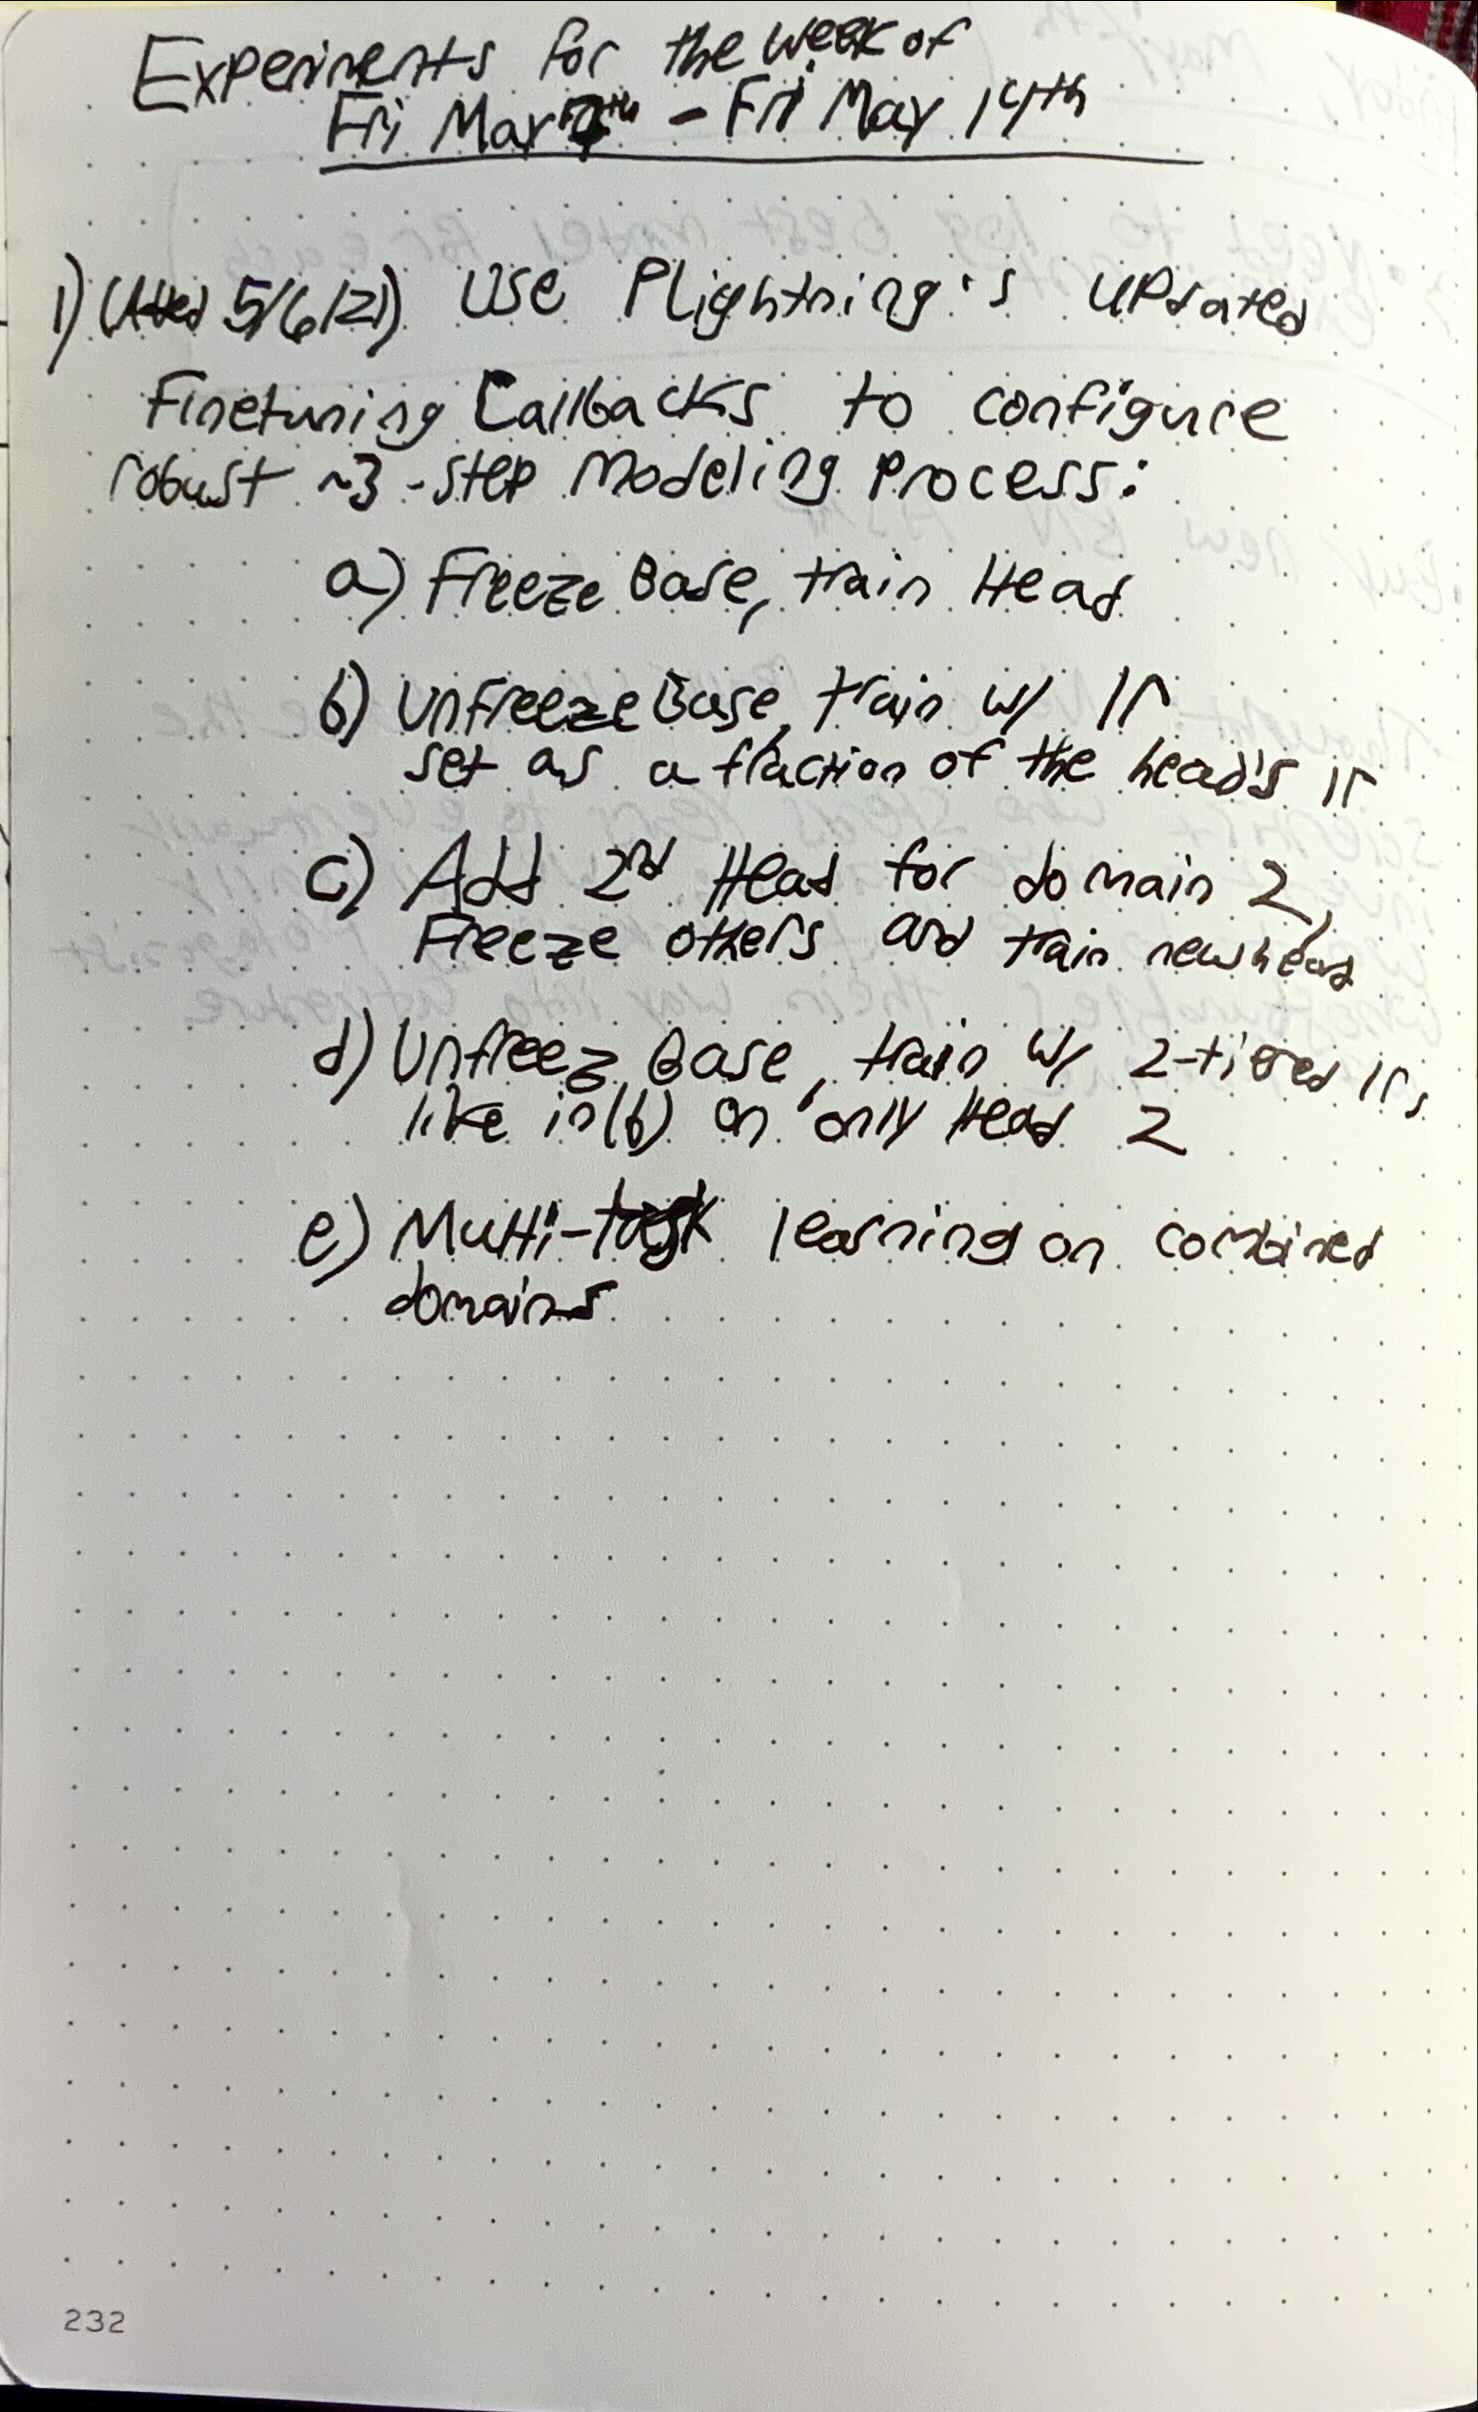 Experiments for the week of
Fri May 7th - Fri May 14th
1) (Added 5/6/21) Use PLightning's updated
Finetuning Callbacks to configure
robust ~3-step modeling process:
a) Freeze Base, train Head
b) Unfreeze Base, train w/ lr
set as a fraction of the head's lr
c) Add 2nd Head for domain 2,
Freeze others and train new head
d) Unfreez Base, train w/ 2-tiered lrs
like in (b) on only Head 2
e) Multi-task learning on combined
domains
232